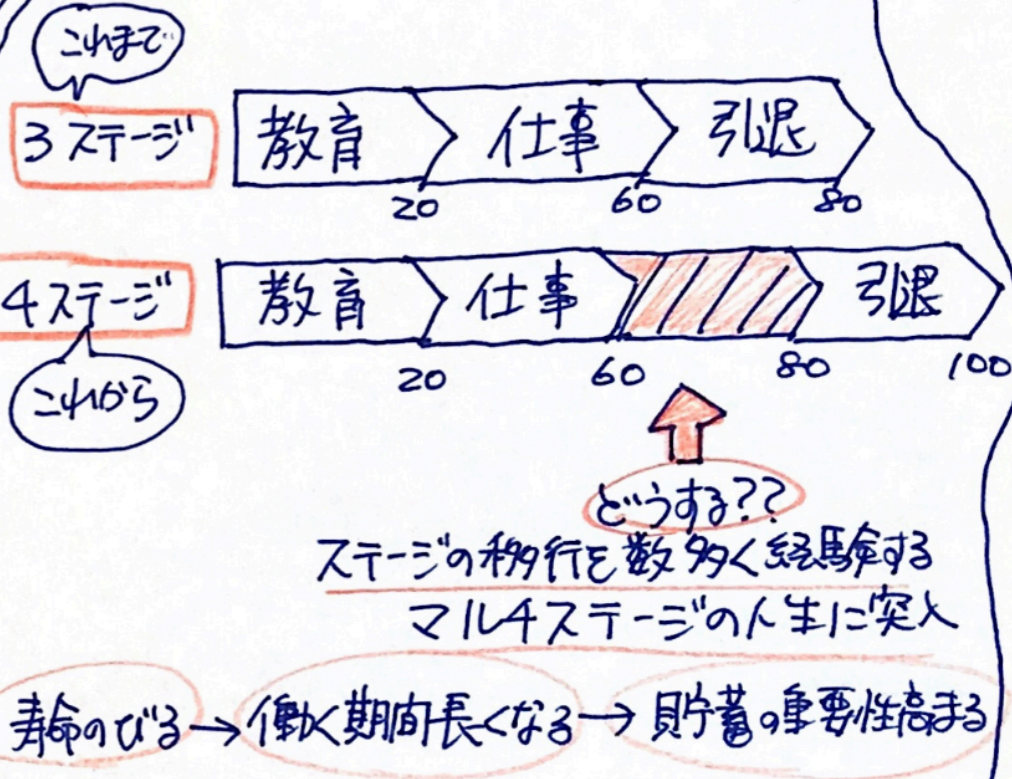 これまで
3ステージ 教育 仕事 引退
20 60 80
4ステージ 教育 仕事 引退
20 60 80 100
これから
どうする??
ステージの移行を数多く経験する
マルチステージの人生に突入
寿命のびる→働く期間長くなる→貯蓄の重要性高まる